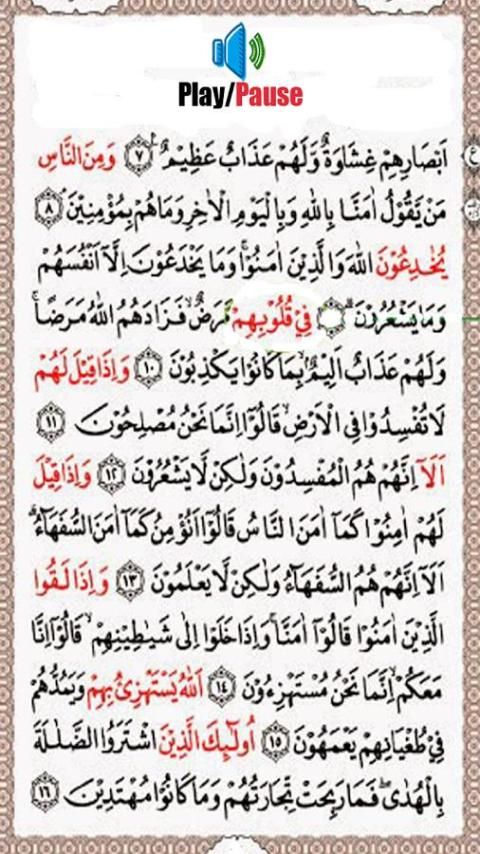 Play/Pause
اَبْصَارِهِمْ غِشَاوَةٌ وَّلَهُمْ عَذَابٌ عَظِيْمٌ ۝٧ وَمِنَ النَّاسِ
مَنْ يَّقُوْلُ اٰمَنَّا بِاللّٰهِ وَبِالْيَوْمِ الْاٰخِرِ وَمَا هُمْ بِمُؤْمِنِيْنَ ۝٨
يُخٰدِعُوْنَ اللّٰهَ وَالَّذِيْنَ اٰمَنُوْا ۚ وَمَا يَخْدَعُوْنَ اِلَّاۤ اَنْفُسَهُمْ
وَمَا يَشْعُرُوْنَ فِيْ قُلُوْبِهِمْ مَّرَضٌ ۙ فَزَادَهُمُ اللّٰهُ مَرَضًا ۚ
وَلَهُمْ عَذَابٌ اَلِيْمٌ ۢۙ بِمَا كَانُوْا يَكْذِبُوْنَ ۝١٠ وَاِذَا قِيْلَ لَهُمْ
لَا تُفْسِدُوْا فِي الْاَرْضِ ۙ قَالُوْۤا اِنَّمَا نَحْنُ مُصْلِحُوْنَ ۝١١
اَلَاۤ اِنَّهُمْ هُمُ الْمُفْسِدُوْنَ وَلٰكِنْ لَّا يَشْعُرُوْنَ ۝١٢ وَاِذَا قِيْلَ
لَهُمْ اٰمِنُوْا كَمَاۤ اٰمَنَ النَّاسُ قَالُوْۤا اَنُؤْمِنُ كَمَاۤ اٰمَنَ السُّفَهَآءُ ؕ
اَلَاۤ اِنَّهُمْ هُمُ السُّفَهَآءُ وَلٰكِنْ لَّا يَعْلَمُوْنَ ۝١٣ وَاِذَا لَقُوا
الَّذِيْنَ اٰمَنُوْا قَالُوْۤا اٰمَنَّا ۚ وَاِذَا خَلَوْا اِلٰى شَيٰطِيْنِهِمْ ۙ قَالُوْۤا اِنَّا
مَعَكُمْ ۙ اِنَّمَا نَحْنُ مُسْتَهْزِءُوْنَ ۝١٤ اَللّٰهُ يَسْتَهْزِئُ بِهِمْ وَيَمُدُّهُمْ
فِيْ طُغْيَانِهِمْ يَعْمَهُوْنَ ۝١٥ اُولٰٓئِكَ الَّذِيْنَ اشْتَرَوُا الضَّلٰلَةَ
بِالْهُدٰى ۪ فَمَا رَبِحَتْ تِّجَارَتُهُمْ وَمَا كَانُوْا مُهْتَدِيْنَ ۝١٦